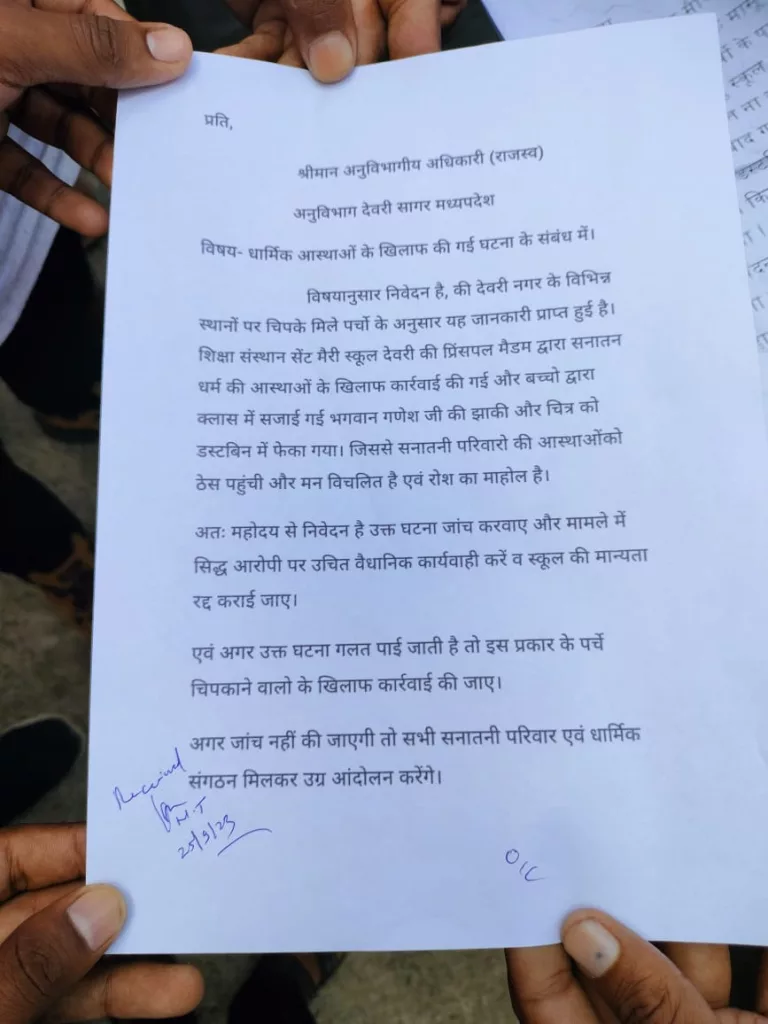 प्रति,
श्रीमान अनुविभागीय अधिकारी (राजस्व)
अनुविभाग देवरी सागर मध्यपदेश
विषय- धार्मिक आस्थाओं के खिलाफ की गई घटना के संबंध में।
विषयानुसार निवेदन है, की देवरी नगर के विभिन्न
स्थानों पर चिपके मिले पर्चो के अनुसार यह जानकारी प्राप्त हुई है।
शिक्षा संस्थान सेंट मैरी स्कूल देवरी की प्रिंसपल मैडम द्वारा सनातन
धर्म की आस्थाओं के खिलाफ कार्रवाई की गई और बच्चो द्वारा
क्लास में सजाई गई भगवान गणेश जी की झाकी और चित्र को
डस्टबिन में फेका गया। जिससे सनातनी परिवारो की आस्थाओंको
ठेस पहुंची और मन विचलित है एवं रोश का माहोल है।
अतः महोदय से निवेदन है उक्त घटना जांच करवाए और मामले में
सिद्ध आरोपी पर उचित वैधानिक कार्यवाही करें व स्कूल की मान्यता
रद्द कराई जाए।
एवं अगर उक्त घटना गलत पाई जाती है तो इस प्रकार के पर्चे
चिपकाने वालो के खिलाफ कार्रवाई की जाए।
अगर जांच नहीं की जाएगी तो सभी सनातनी परिवार एवं धार्मिक
संगठन मिलकर उग्र आंदोलन करेंगे।
Received
N.T
25/9/23
O/C
स्कूल